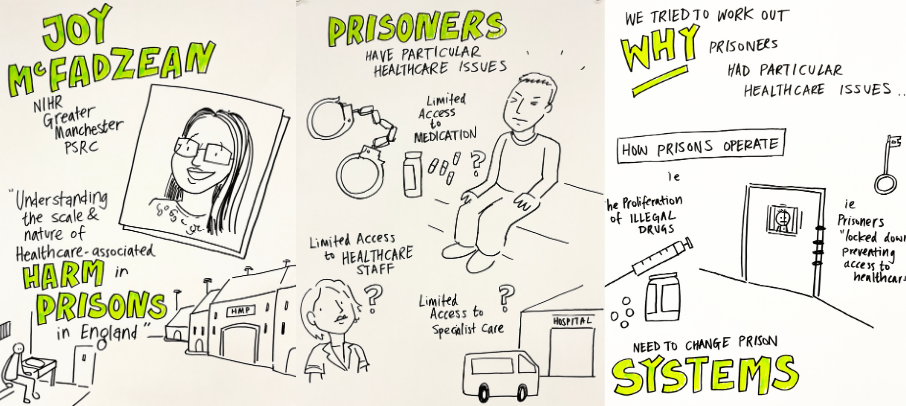 JOY
McFADZEAN
NIHR
Greater
Manchester
PSRC
"Understanding
the scale &
nature of
Healthcare-associated
HARM in
PRISONS
in England"
HMP
PRISONERS
HAVE PARTICULAR
HEALTHCARE ISSUES
Limited
Access
to
MEDICATION
?
Limited Access
to HEALTHCARE
STAFF
?
Limited
Access to
Specialist Care
?
HOSPITAL
WE TRIED TO WORK OUT
WHY PRISONERS
HAD PARTICULAR
HEALTHCARE ISSUES..
HOW PRISONS OPERATE
ie
he Proliferation
of ILLEGAL
DRUGS
ie
Prisoners
"locked dow
preventing
access to
healthcar
NEED TO CHANGE PRISON
SYSTEMS